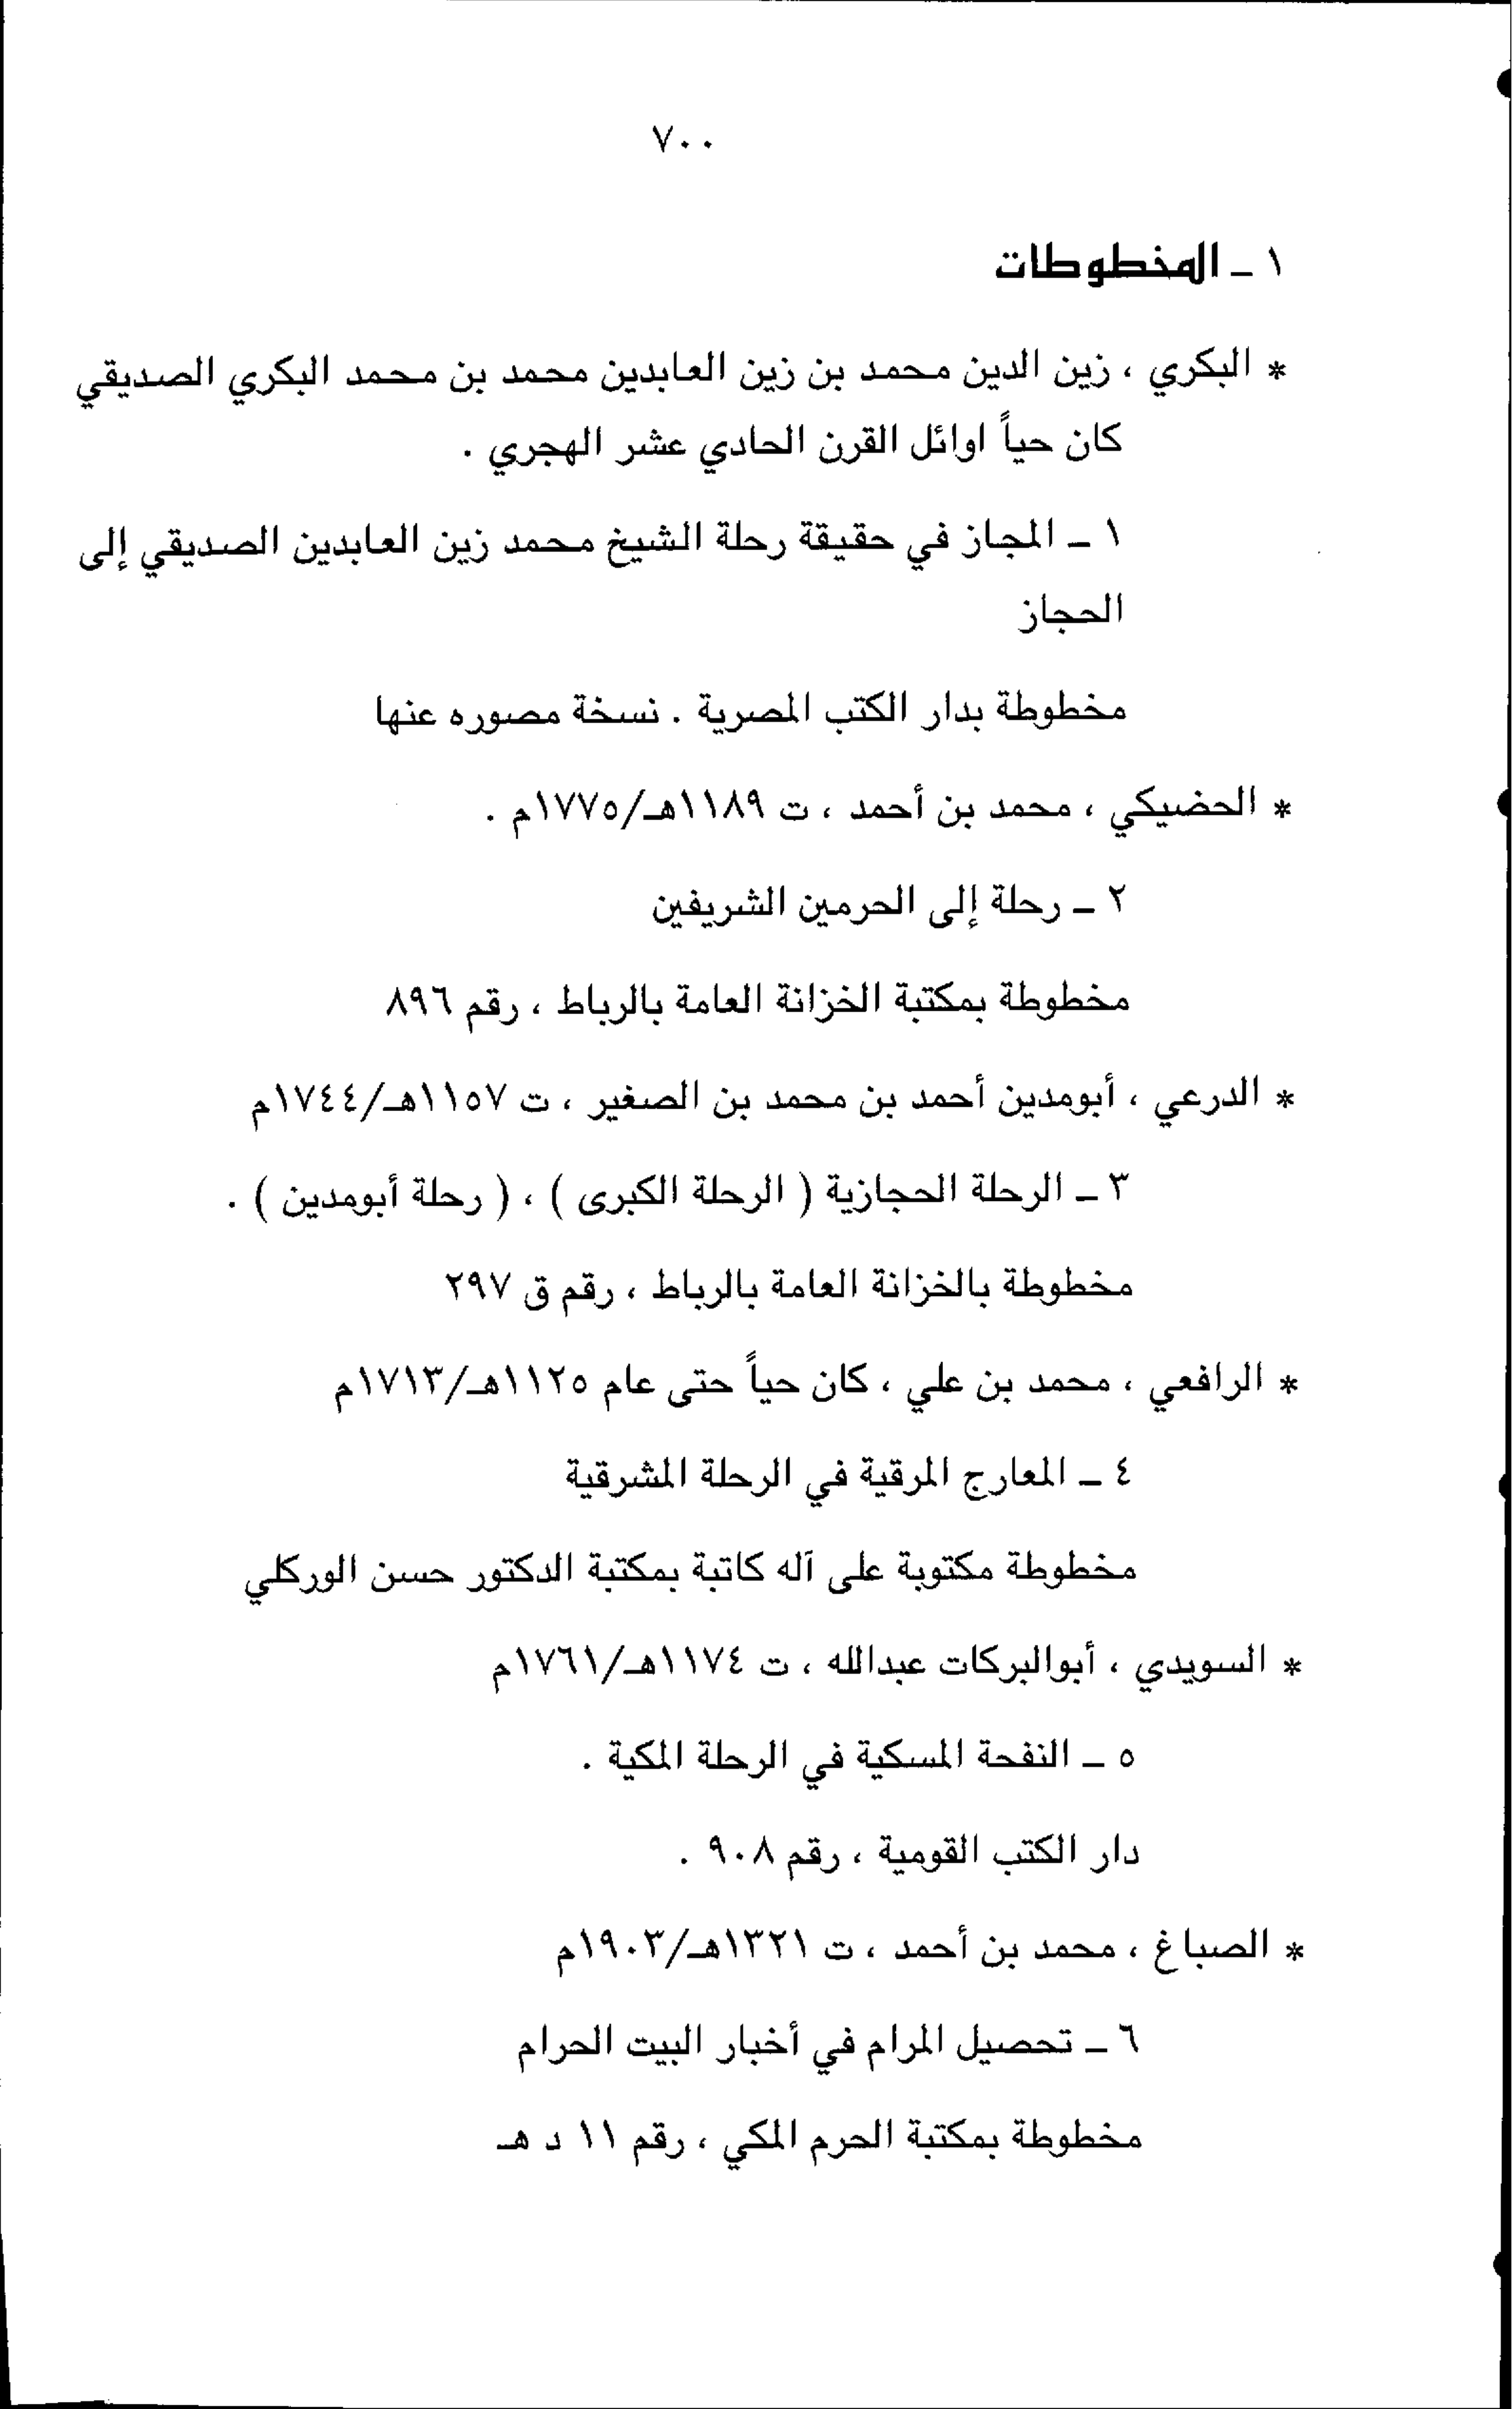 ٧٠٠
١ ـ المخطوطات
* البكري ، زين الدين محمد بن زين العابدين محمد بن محمد البكري الصديقي
كان حياً اوائل القرن الحادي عشر الهجري .
١ ـ المجاز في حقيقة رحلة الشيخ محمد زين العابدين الصديقي إلى
الحجاز
مخطوطة بدار الكتب المصرية . نسخة مصوره عنها
* الحضيكي ، محمد بن أحمد ، ت ١١٨٩هـ/١٧٧٥م .
٢ ـ رحلة إلى الحرمين الشريفين
مخطوطة بمكتبة الخزانة العامة بالرباط ، رقم ٨٩٦
* الدرعي ، أبومدين أحمد بن محمد بن الصغير ، ت ١١٥٧هـ/١٧٤٤م
٣ ـ الرحلة الحجازية ( الرحلة الكبرى ) ، ( رحلة أبومدين ) .
مخطوطة بالخزانة العامة بالرباط ، رقم ق ٢٩٧
* الرافعي ، محمد بن علي ، كان حياً حتى عام ١١٢٥هـ/١٧١٣م
٤ ـ المعارج المرقية في الرحلة المشرقية
مخطوطة مكتوبة على آله كاتبة بمكتبة الدكتور حسن الوركلي
* السويدي ، أبوالبركات عبدالله ، ت ١١٧٤هـ/١٧٦١م
٥ ـ النفحة المسكية في الرحلة المكية .
دار الكتب القومية ، رقم ٩٠٨ .
* الصباغ ، محمد بن أحمد ، ت ١٣٢١هـ/١٩٠٣م
٦ ـ تحصيل المرام في أخبار البيت الحرام
مخطوطة بمكتبة الحرم المكي ، رقم ١١ د هـ